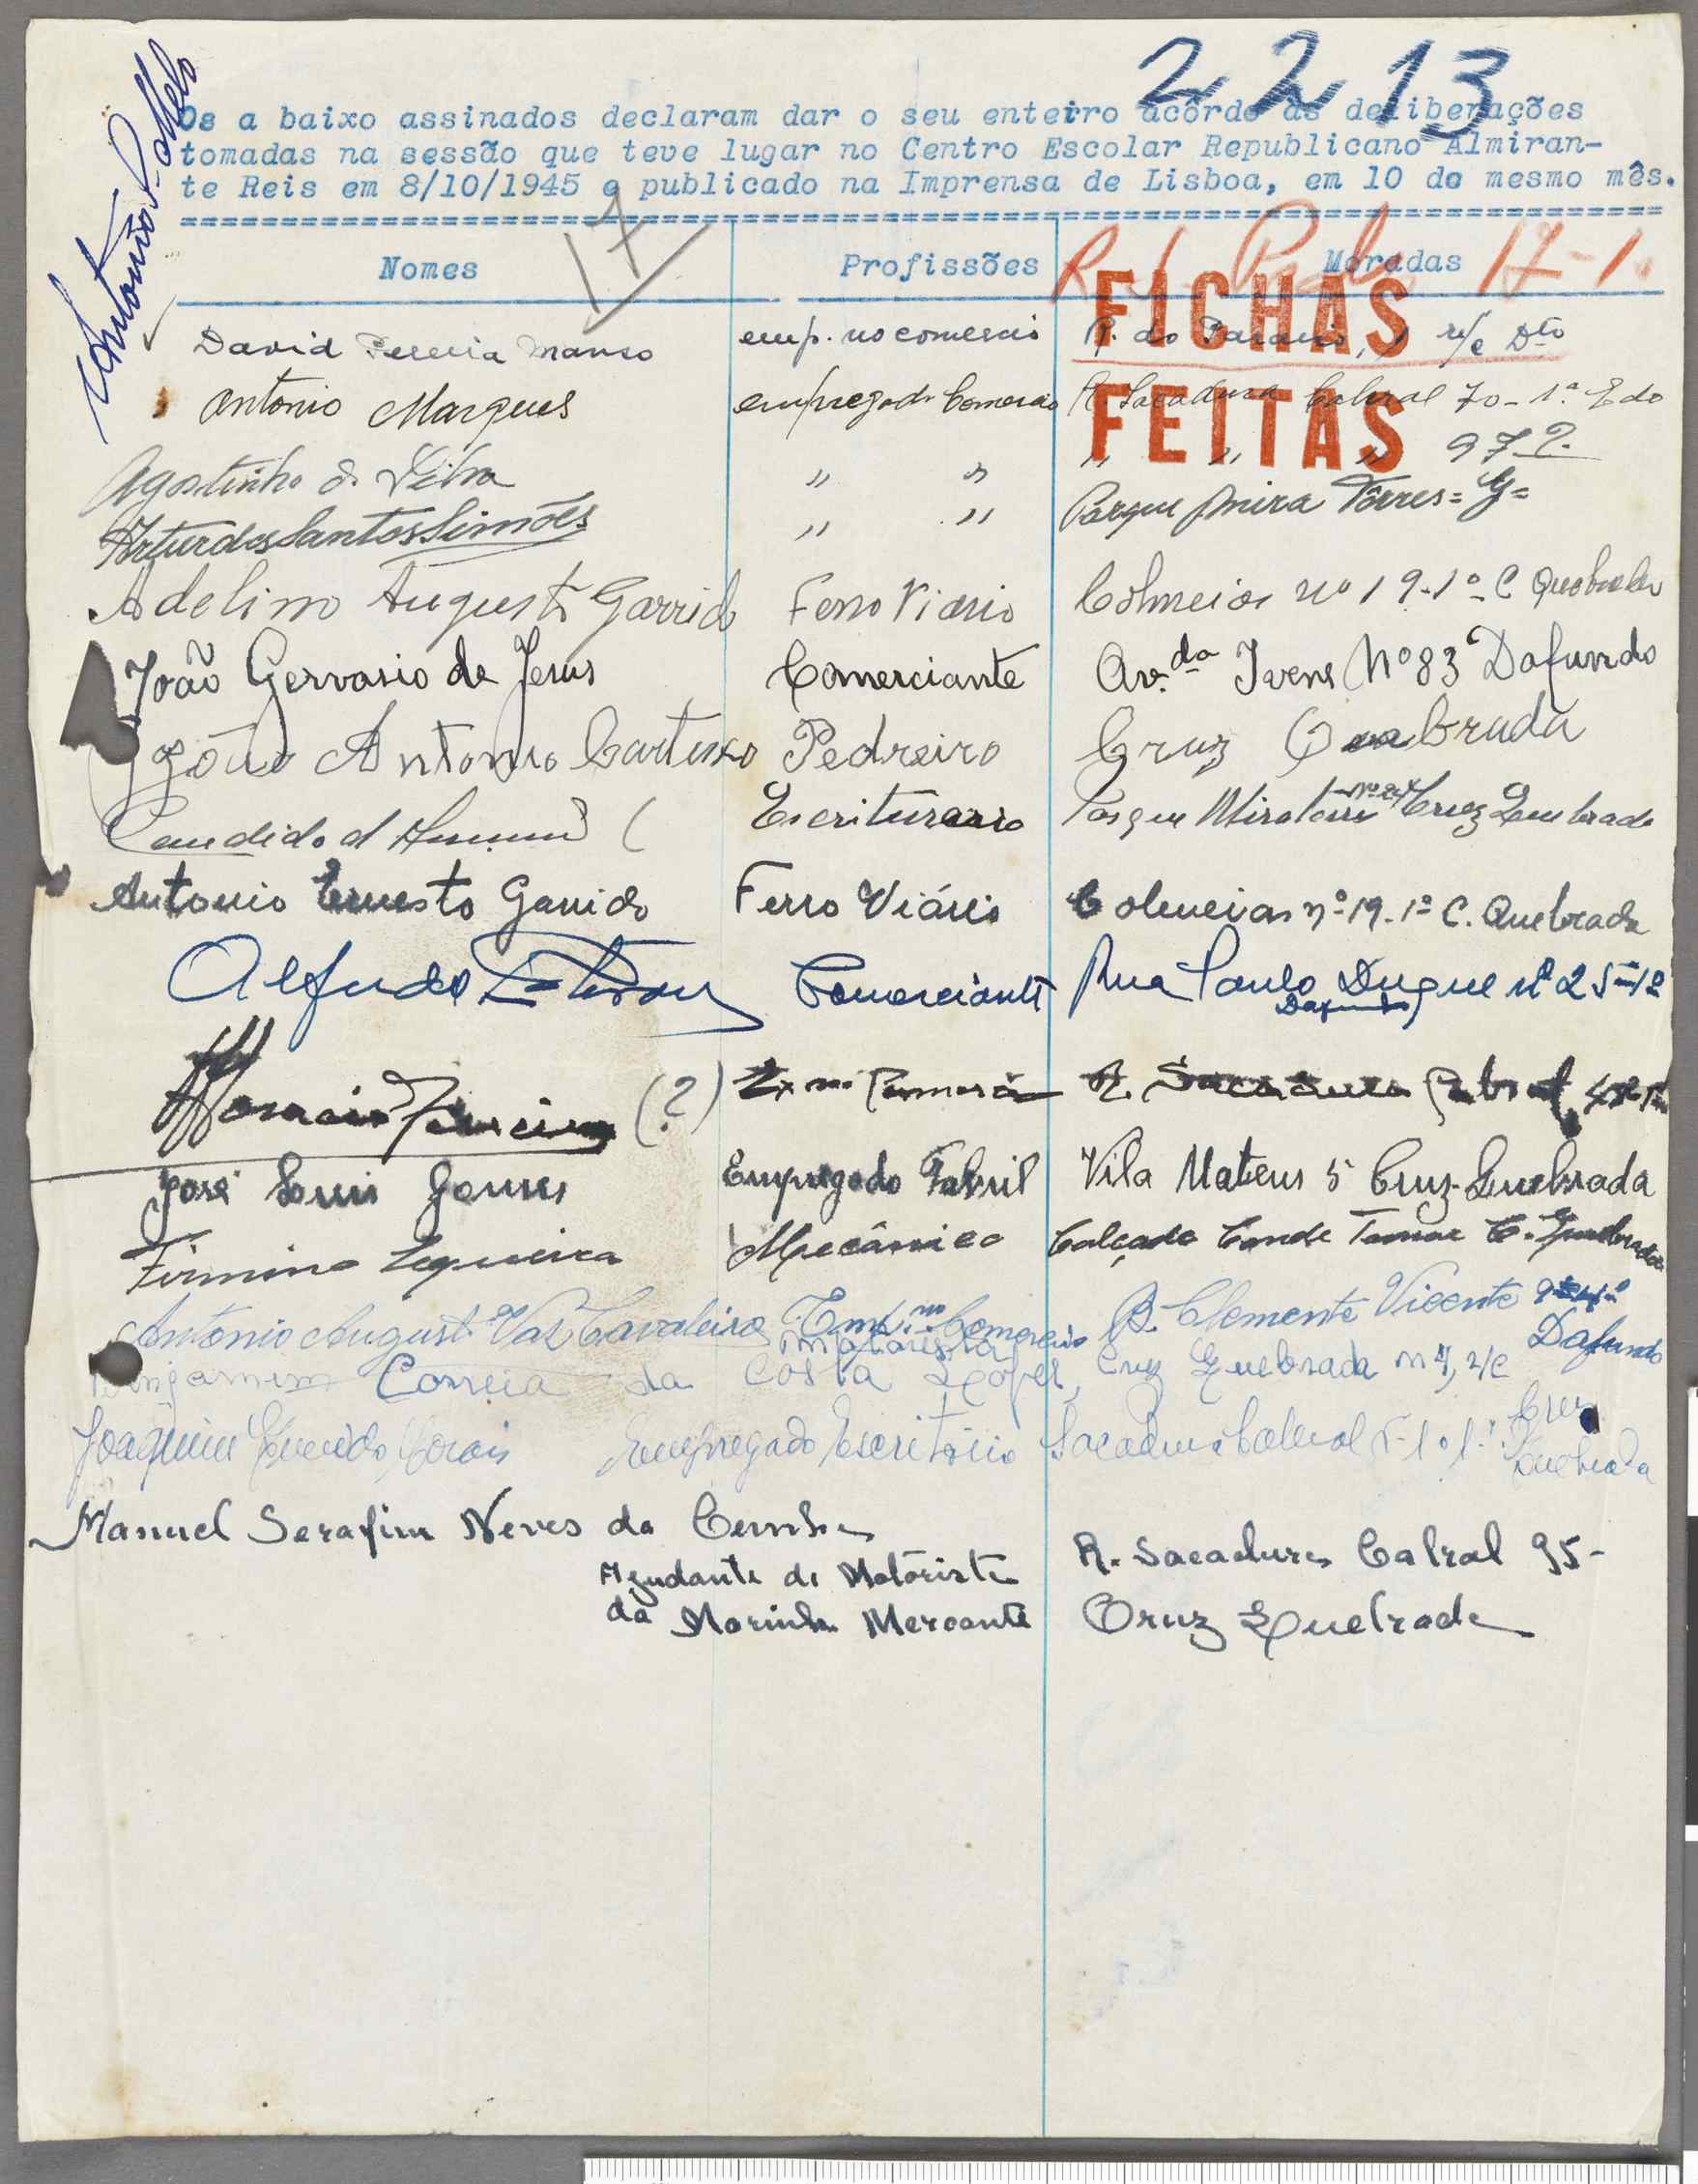 2213
Os a baixo assinados declaram dar o seu enteiro acôrdo às deliberações
tomadas na sessão que teve lugar no Centro Escolar Republicano Almiran-
te Reis em 8/10/1945 e publicado na Imprensa de Lisboa, em 10 do mesmo mês.
17
Nomes Profissões Moradas
17-1.
FICHAS
FEITAS
David Pereira Manso emp. no comercio R. do r/c Dto
Antonio Marques empregado Comercio R Sacadura Cabral 70-1º Edo
Agostinho da Silva " " " " " 97
Artur dos Santos Simões " " Parque Mira Tôrres = G =
Adelino Augusto Garrido Ferro Viario Colmeias nº 19-1º C Quebrada
João Gervasio de Jesus Comerciante Av.da Ivens Nº 83 Dafundo
João Antonio Cartaxo Pedreiro Cruz Quebrada
Candido d ( Escriturario Parque Mira Torres Cruz Quebrada
Antonio Ernesto Garrido Ferro Viário Colmeias nº 19-1º C. Quebrada
Alfredo Comerciante Rua Paulo Duque nº 25-1º
Dafundo
(?) R. Sacadura Cabral
José Luis Gomes Empregado Fabril Vila Mateus 5 Cruz-Quebrada
Firmino Sequeira Mecânico Calçada Conde Tomar C. Quebrada
Antonio Augusto Vaz Cavaleiro Emp. no Comercio R. Clemente Vicente
Dafundo
Motorista
Benjamim Correia da Costa Lopes, Cruz Quebrada r/c
Joaquim Morais Empregado Escritório Sacadura Cabral Cruz
Quebrada
Manuel Serafim Neves da Cunha
Ajudante de Motorista R. Sacadura Cabral 95-
da Marinha Mercante Cruz Quebrada